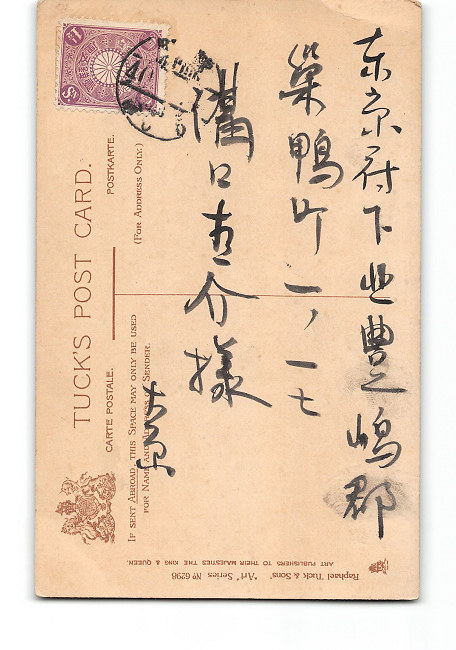 東京府下北豊嶋郡
巣鴨町一ノ一七
溝口吉介様
大原
TUCK'S POST CARD.
CARTE POSTALE.
POSTKARTE.
(FOR ADDRESS ONLY.)
IF SENT ABROAD, THIS SPACE MAY ONLY BE USED
FOR NAME AND ADDRESS OF SENDER.
Raphael Tuck & Sons' "Art" Series No 6298
ART PUBLISHERS TO THEIR MAJESTIES THE KING & QUEEN.